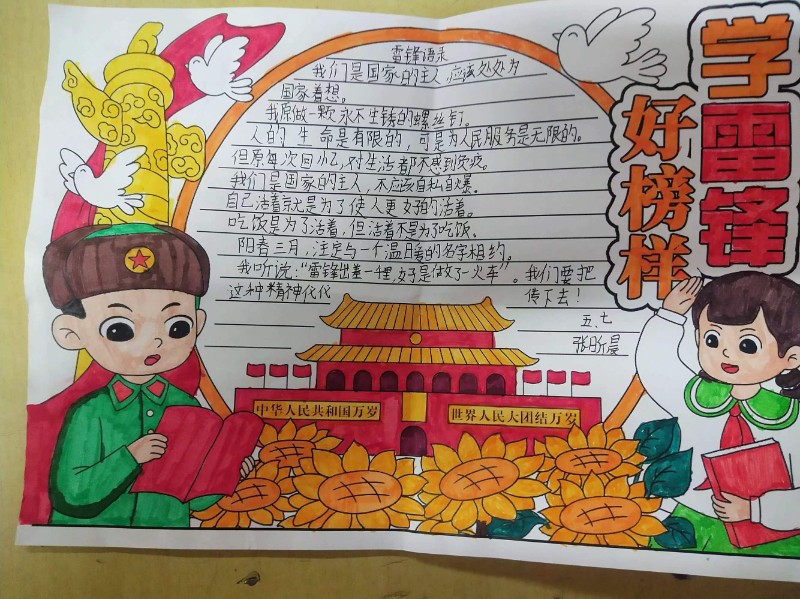 学雷锋
好榜样
雷锋语录
我们是国家的主人,应该处处为
国家着想。
我原做一颗永不生锈的螺丝钉。
人的生命是有限的,可是为人民服务是无限的。
但原每次回忆,对生活都不感到
我们是国家的主人,不应该自私自
自己活着就是为了使人更好的活着。
吃饭是为了活着,但活着不是为了吃饭。
阳春三月,注定与一个温暖的名字相约。
我听说:“雷锋出差一千里,好事做了一火车”。我们要把
这种精神代代 传下去!
五、七
中华人民共和国万岁
世界人民大团结万岁